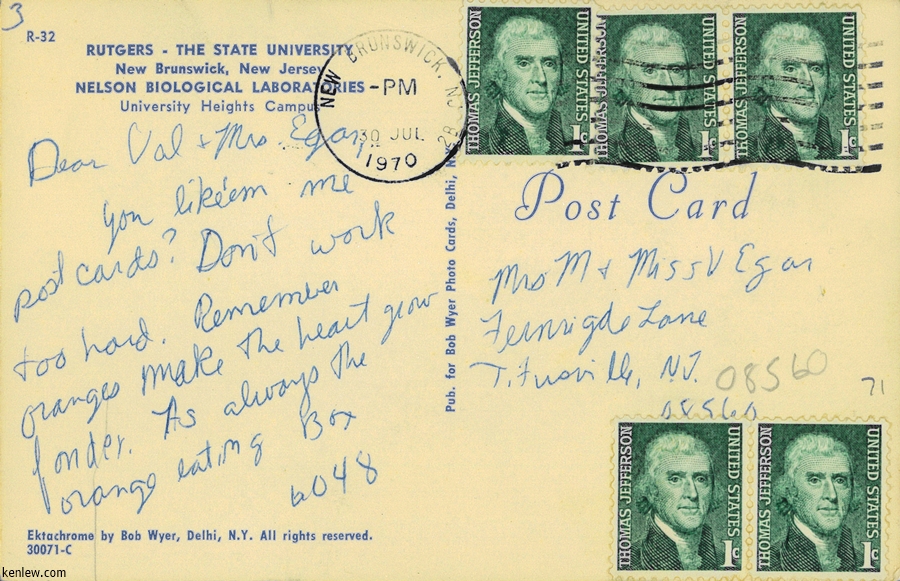 3
R-32
RUTGERS - THE STATE UNIVERSITY
New Brunswick, New Jersey
NELSON BIOLOGICAL LABORATORIES
University Heights Campus
Dear Val + Mrs. Egan,
You like'em me
post cards? Don't work
too hard. Remember
oranges make the heart grow
fonder. As always the
orange eating Box
6048
Ektachrome by Bob Wyer, Delhi, N.Y. All rights reserved.
30071-C
Pub. for Bob Wyer Photo Cards, Delhi, N.
NEW BRUNSWICK, NJ
PM
30 JUL
1970
THOMAS JEFFERSON
UNITED STATES
1c
THOMAS JEFFERSON
1c
THOMAS JEFFERSON
UNITED STATES
1c
Post Card
Mrs M + Miss V Egan
Lane
Titusville, NJ.
08560
08560
71
THOMAS JEFFERSON
UNITED STATES
1c
THOMAS JEFFERSON
UNITED STATES
1c
kenlew.com